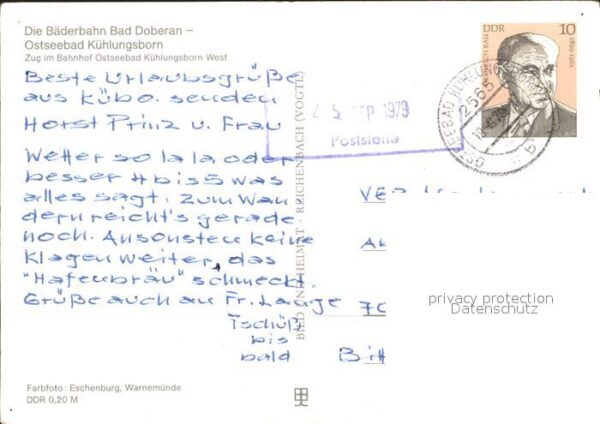 Die Bäderbahn Bad Doberan –
Ostseebad Kühlungsborn
Zug im Bahnhof Ostseebad Kühlungsborn West
Beste Urlaubsgrüße
aus Kübo. senden
Horst Prinz u. Frau
Wetter so la la oder
besser + bis 5 was
alles sagt. Zum Wan
dern reicht's gerade
noch. Ansonsten keine
Klagen weiter, das
"Hafenbräu" schmeckt.
Grüße auch an Fr. Lange
Tschüß
bis
bald
Farbfoto: Eschenburg, Warnemünde
DDR 0,20 M
BILD UND HEIMAT · REICHENBACH (VOGTL)
25 SEP 1979
Poststelle
DDR 10
OSTSEEBAD KÜHLUNGSBORN
2565
VEB
7C
Bitt
privacy protection
Datenschutz